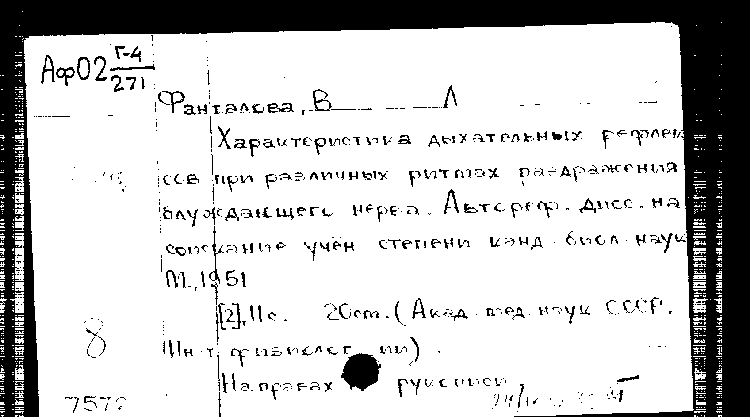 Аф02 Г-4/271
Фанталова, В Л
Характеристика дыхательных рефлек
сов при различных ритмах раздражения
блуждающего нерва. Автореф. дисс. на
соискание учен степени канд. биол. наук
М., 1951
[2], 11 с. 20 см. (Акад. мед. наук СССР.
8
Ин-т физиолог ии).
На правах рукописи
7572